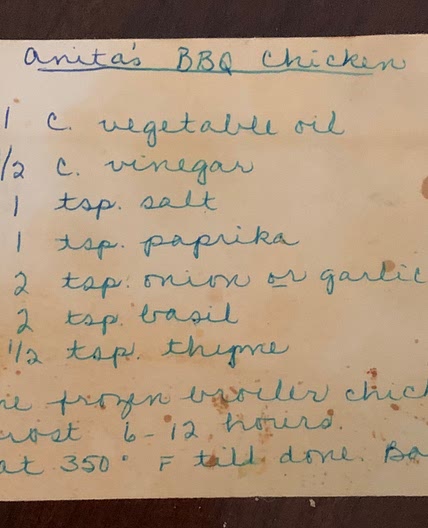 Anita's BBQ Chicken
1 c. vegetable oil
1/2 c. vinegar
1 tsp. salt
1 tsp. paprika
2 tsp. onion or garlic
2 tsp. basil
1/2 tsp. thyme
frozen broiler
6-12 hours.
at 350° F till done.